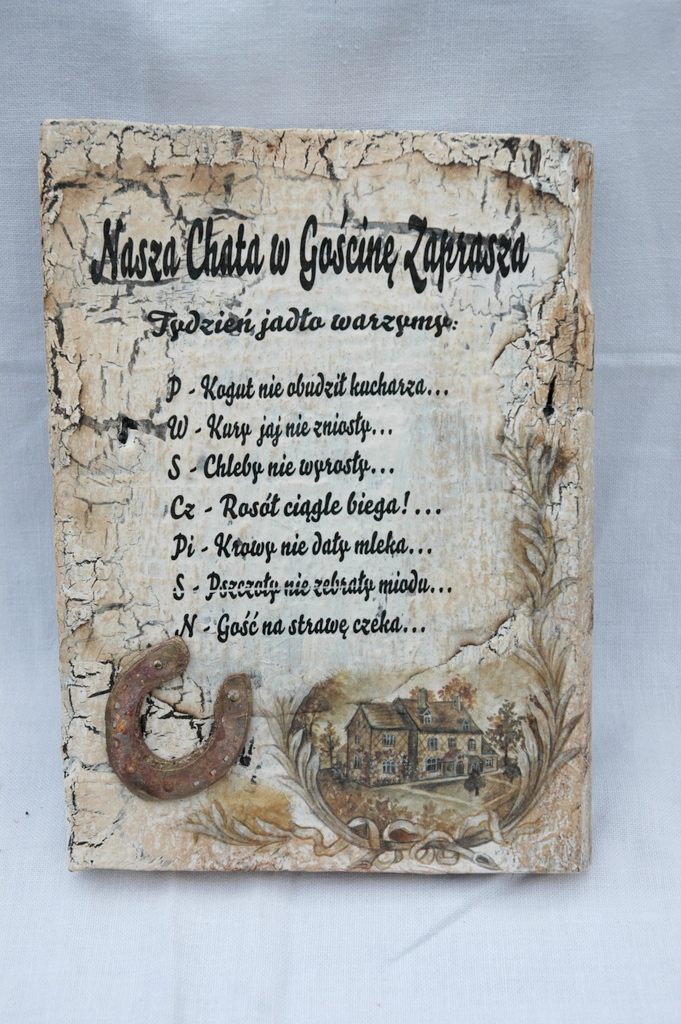 Nasza Chata w Gościnę Zaprasza
Tydzień, jadło warzymy:
P - Kogut nie obudził kucharza...
W - Kury jaj nie zniosły...
S - Chleby nie wyrosły...
Cz - Rosół ciągle biega!...
Pi - Krowy nie dały mleka...
S - Pszczoły nie zebrały miodu...
N - Gość na strawę czeka...